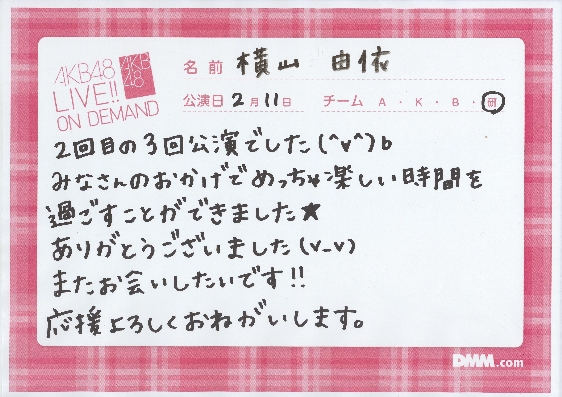 AKB48
LIVE!!
ON DEMAND
AKB
48
名前 横山 由依
公演日 2月11日 チーム A・K・B・研
2回目の3回公演でした(^v^)b
みなさんのおかげでめっちゃ楽しい時間を
過ごすことができました★
ありがとうございました(v_v)
またお会いしたいです!!
応援よろしくおねがいします。
DMM.com